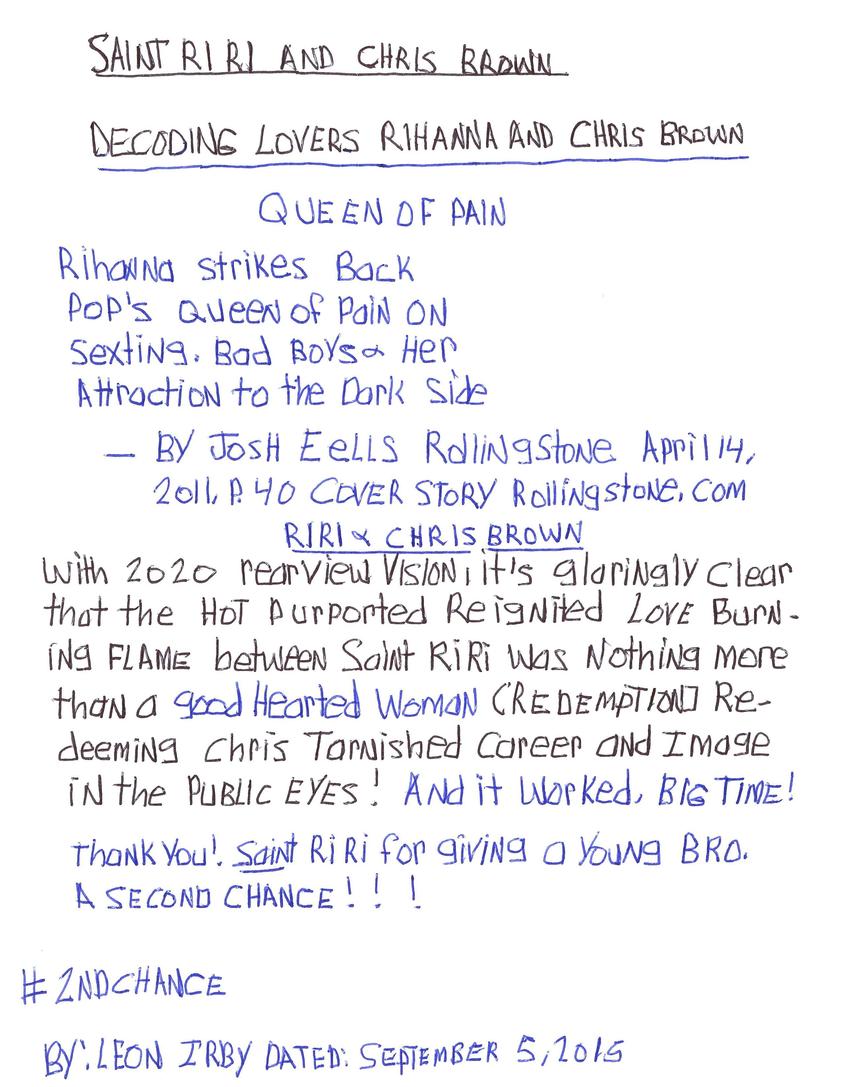 SAINT RIRI AND CHRIS BROWN
DECODING LOVERS RIHANNA AND CHRIS BROWN
QUEEN OF PAIN
Rihanna strikes Back
POP'S QUEEN of Pain ON
Sexting. Bad Boys & Her
Attraction to the Dark Side
— BY JOSH EELLS Rollingstone April 14,
2011, P. 40 COVER STORY Rollingstone.COM
RIRI & CHRIS BROWN
With 2020 rearview VISION, it's glaringly Clear
that the HOT Purported Reignited LOVE BURN-
ING FLAME between Saint RiRi was Nothing more
than a good Hearted Woman (REDEMPTION) Re-
deeming Chris Tarnished Career and Image
in the PUBLIC EYES! And it Worked, BIG TIME!
Thank You!. Saint RiRi for giving a YOUNG BRO.
A SECOND CHANCE! ! !
# 2NDCHANCE
BY: LEON IRBY DATED: SEPTEMBER 5, 2015